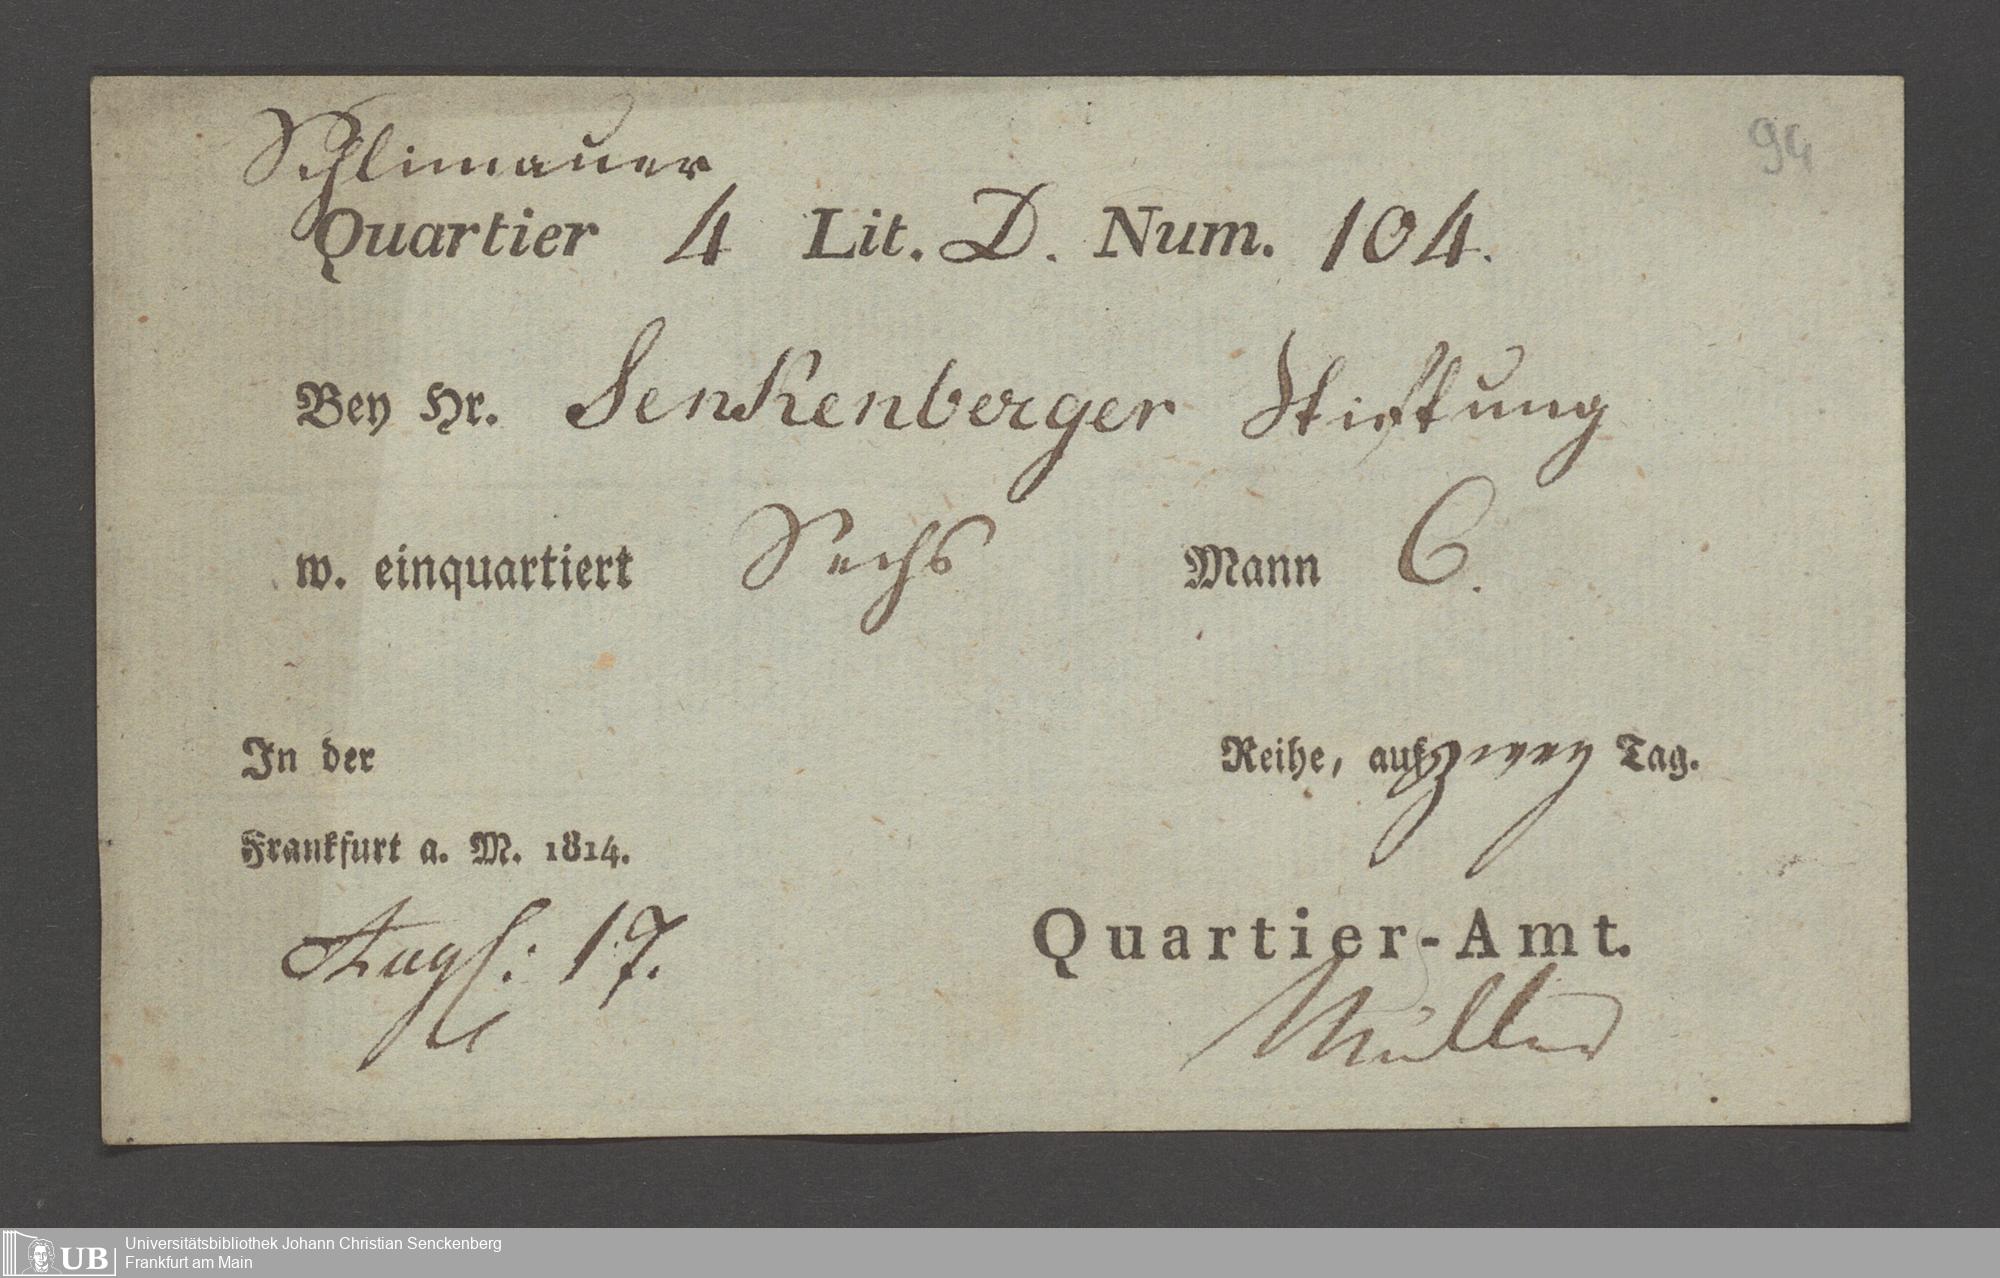 Schlimauer
94
Quartier 4 Lit. D. Num. 104.
Bey Hr. Senkenberger Stiftung
w. einquartiert Sechs Mann 6.
In der Reihe, auf zwey Tag.
Frankfurt a. M. 1814.
17.
Quartier-Amt.
Müller
UB
Universitätsbibliothek Johann Christian Senckenberg
Frankfurt am Main